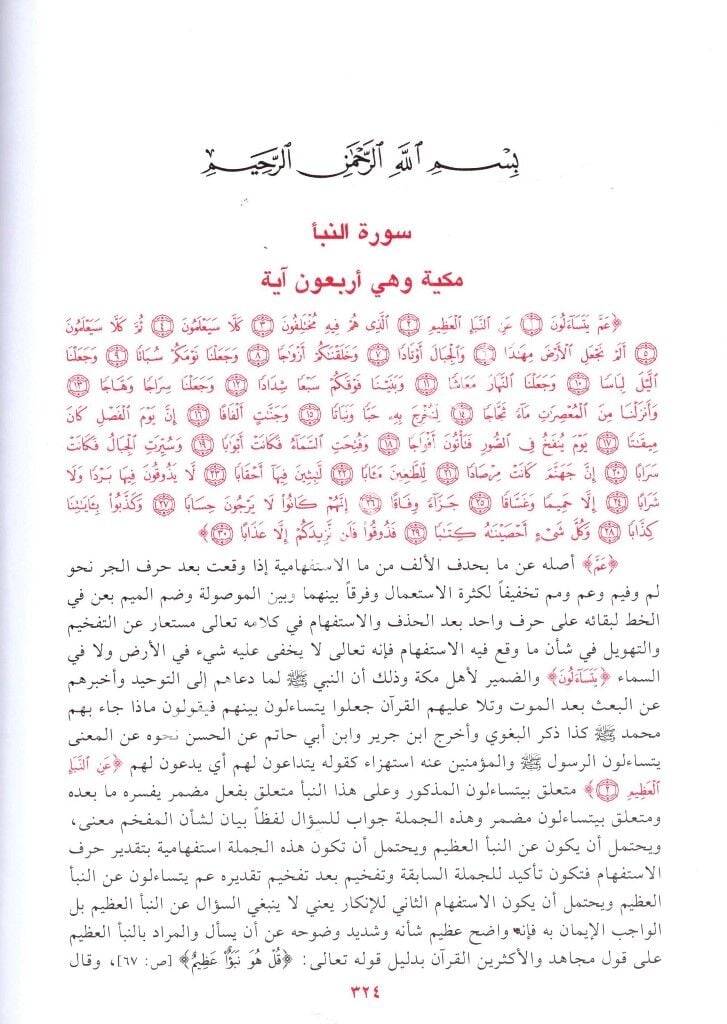 بِسْمِ اللَّهِ الرَّحْمَٰنِ الرَّحِيمِ
سورة النبأ
مكية وهي أربعون آية
﴿عَمَّ يَتَسَاءَلُونَ ۝١ عَنِ النَّبَإِ الْعَظِيمِ ۝٢ الَّذِي هُمْ فِيهِ مُخْتَلِفُونَ ۝٣ كَلَّا سَيَعْلَمُونَ ۝٤ ثُمَّ كَلَّا سَيَعْلَمُونَ
۝٥ أَلَمْ نَجْعَلِ الْأَرْضَ مِهَٰدًا ۝٦ وَالْجِبَالَ أَوْتَادًا ۝٧ وَخَلَقْنَٰكُمْ أَزْوَٰجًا ۝٨ وَجَعَلْنَا نَوْمَكُمْ سُبَاتًا ۝٩ وَجَعَلْنَا
الَّيْلَ لِبَاسًا ۝١٠ وَجَعَلْنَا النَّهَارَ مَعَاشًا ۝١١ وَبَنَيْنَا فَوْقَكُمْ سَبْعًا شِدَادًا ۝١٢ وَجَعَلْنَا سِرَاجًا وَهَّاجًا ۝١٣
وَأَنزَلْنَا مِنَ الْمُعْصِرَٰتِ مَآءً ثَجَّاجًا ۝١٤ لِّنُخْرِجَ بِهِۦ حَبًّا وَنَبَاتًا ۝١٥ وَجَنَّٰتٍ أَلْفَافًا ۝١٦ إِنَّ يَوْمَ الْفَصْلِ كَانَ
مِيقَٰتًا ۝١٧ يَوْمَ يُنفَخُ فِي الصُّورِ فَتَأْتُونَ أَفْوَاجًا ۝١٨ وَفُتِحَتِ السَّمَآءُ فَكَانَتْ أَبْوَٰبًا ۝١٩ وَسُيِّرَتِ الْجِبَالُ فَكَانَتْ
سَرَابًا ۝٢٠ إِنَّ جَهَنَّمَ كَانَتْ مِرْصَادًا ۝٢١ لِّلطَّٰغِينَ مَـَٔابًا ۝٢٢ لَّٰبِثِينَ فِيهَآ أَحْقَابًا ۝٢٣ لَّا يَذُوقُونَ فِيهَا بَرْدًا وَلَا
شَرَابًا ۝٢٤ إِلَّا حَمِيمًا وَغَسَّاقًا ۝٢٥ جَزَآءً وِفَاقًا ۝٢٦ إِنَّهُمْ كَانُوا لَا يَرْجُونَ حِسَابًا ۝٢٧ وَكَذَّبُوا بِـَٔايَٰتِنَا
كِذَّابًا ۝٢٨ وَكُلَّ شَيْءٍ أَحْصَيْنَٰهُ كِتَٰبًا ۝٢٩ فَذُوقُوا فَلَن نَّزِيدَكُمْ إِلَّا عَذَابًا ۝٣٠﴾
﴿عَمَّ﴾ أصله عن ما بحدف الألف من ما الاستفهامية إذا وقعت بعد حرف الجر نحو
لم وفيم وعم ومم تخفيفاً لكثرة الاستعمال وفرقاً بينهما وبين الموصولة وضم الميم بعن في
الخط لبقائه على حرف واحد بعد الحذف والاستفهام في كلامه تعالى مستعار عن التفخيم
والتهويل في شأن ما وقع فيه الاستفهام فإنه تعالى لا يخفى عليه شيء في الأرض ولا في
السماء ﴿يَتَسَاءَلُونَ﴾ والضمير لأهل مكة وذلك أن النبي ﷺ لما دعاهم إلى التوحيد وأخبرهم
عن البعث بعد الموت وتلا عليهم القرآن جعلوا يتساءلون بينهم فيقولون ماذا جاء بهم
محمد ﷺ كذا ذكر البغوي وأخرج ابن جرير وابن أبي حاتم عن الحسن نحوه عن المعنى
يتساءلون الرسول ﷺ والمؤمنين عنه استهزاء كقوله يتداعون لهم أي يدعون لهم ﴿عَنِ النَّبَإِ
الْعَظِيمِ ۝٢﴾ متعلق بيتساءلون المذكور وعلى هذا النبأ متعلق بفعل مضمر يفسره ما بعده
ومتعلق بيتساءلون مضمر وهذه الجملة جواب للسؤال لفظاً بيان لشأن المفخم معنى،
ويحتمل أن يكون عن النبأ العظيم ويحتمل أن تكون هذه الجملة استفهامية بتقدير حرف
الاستفهام فتكون تأكيد للجملة السابقة وتفخيم بعد تفخيم تقديره عم يتساءلون عن النبأ
العظيم ويحتمل أن يكون الاستفهام الثاني للإنكار يعني لا ينبغي السؤال عن النبأ العظيم بل
الواجب الإيمان به فإنه واضح عظيم شأنه وشديد وضوحه عن أن يسأل والمراد بالنبأ العظيم
على قول مجاهد والأكثرين القرآن بدليل قوله تعالى: ﴿قُلْ هُوَ نَبَؤٌا عَظِيمٌ﴾ [ص: ٦٧]، وقال
٣٢٤